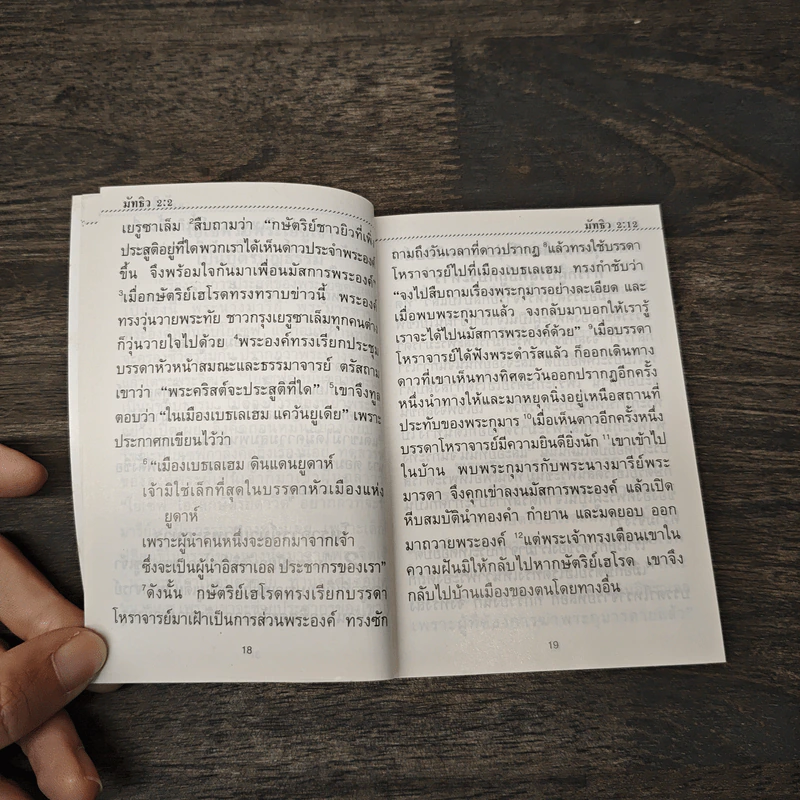 มัทธิว 2:2
เยรูซาเล็ม ²สืบถามว่า “กษัตริย์ชาวยิวที่เพิ่ง
ประสูติอยู่ที่ใดพวกเราได้เห็นดาวประจำพระองค์
ขึ้น จึงพร้อมใจกันมาเพื่อนมัสการพระองค์”
³เมื่อกษัตริย์เฮโรดทรงทราบข่าวนี้ พระองค์
ทรงวุ่นวายพระทัย ชาวกรุงเยรูซาเล็มทุกคนต่าง
ก็วุ่นวายใจไปด้วย ⁴พระองค์ทรงเรียกประชุม
บรรดาหัวหน้าสมณะและธรรมาจารย์ ตรัสถาม
เขาว่า “พระคริสต์จะประสูติที่ใด” ⁵เขาจึงทูล
ตอบว่า “ในเมืองเบธเลเฮม แคว้นยูเดีย” เพราะ
ประกาศกเขียนไว้ว่า
⁶“เมืองเบธเลเฮม ดินแดนยูดาห์
เจ้ามิใช่เล็กที่สุดในบรรดาหัวเมืองแห่ง
ยูดาห์
เพราะผู้นำคนหนึ่งจะออกมาจากเจ้า
ซึ่งจะเป็นผู้นำอิสราเอล ประชากรของเรา”
⁷ดังนั้น กษัตริย์เฮโรดทรงเรียกบรรดา
โหราจารย์มาเฝ้าเป็นการส่วนพระองค์ ทรงซัก
18
มัทธิว 2:12
ถามถึงวันเวลาที่ดาวปรากฏ ⁸แล้วทรงใช้บรรดา
โหราจารย์ไปที่เมืองเบธเลเฮม ทรงกำชับว่า
“จงไปสืบถามเรื่องพระกุมารอย่างละเอียด และ
เมื่อพบพระกุมารแล้ว จงกลับมาบอกให้เรารู้
เราจะได้ไปนมัสการพระองค์ด้วย” ⁹เมื่อบรรดา
โหราจารย์ได้ฟังพระดำรัสแล้ว ก็ออกเดินทาง
ดาวที่เขาเห็นทางทิศตะวันออกปรากฏอีกครั้ง
หนึ่งนำทางให้และมาหยุดนิ่งอยู่เหนือสถานที่
ประทับของพระกุมาร ¹⁰เมื่อเห็นดาวอีกครั้งหนึ่ง
บรรดาโหราจารย์มีความยินดียิ่งนัก ¹¹เขาเข้าไป
ในบ้าน พบพระกุมารกับพระนางมารีย์พระ
มารดา จึงคุกเข่าลงนมัสการพระองค์ แล้วเปิด
หีบสมบัตินำทองคำ กำยาน และมดยอบ ออก
มาถวายพระองค์ ¹²แต่พระเจ้าทรงเตือนเขาใน
ความฝันมิให้กลับไปหากษัตริย์เฮโรด เขาจึง
กลับไปบ้านเมืองของตนโดยทางอื่น
19